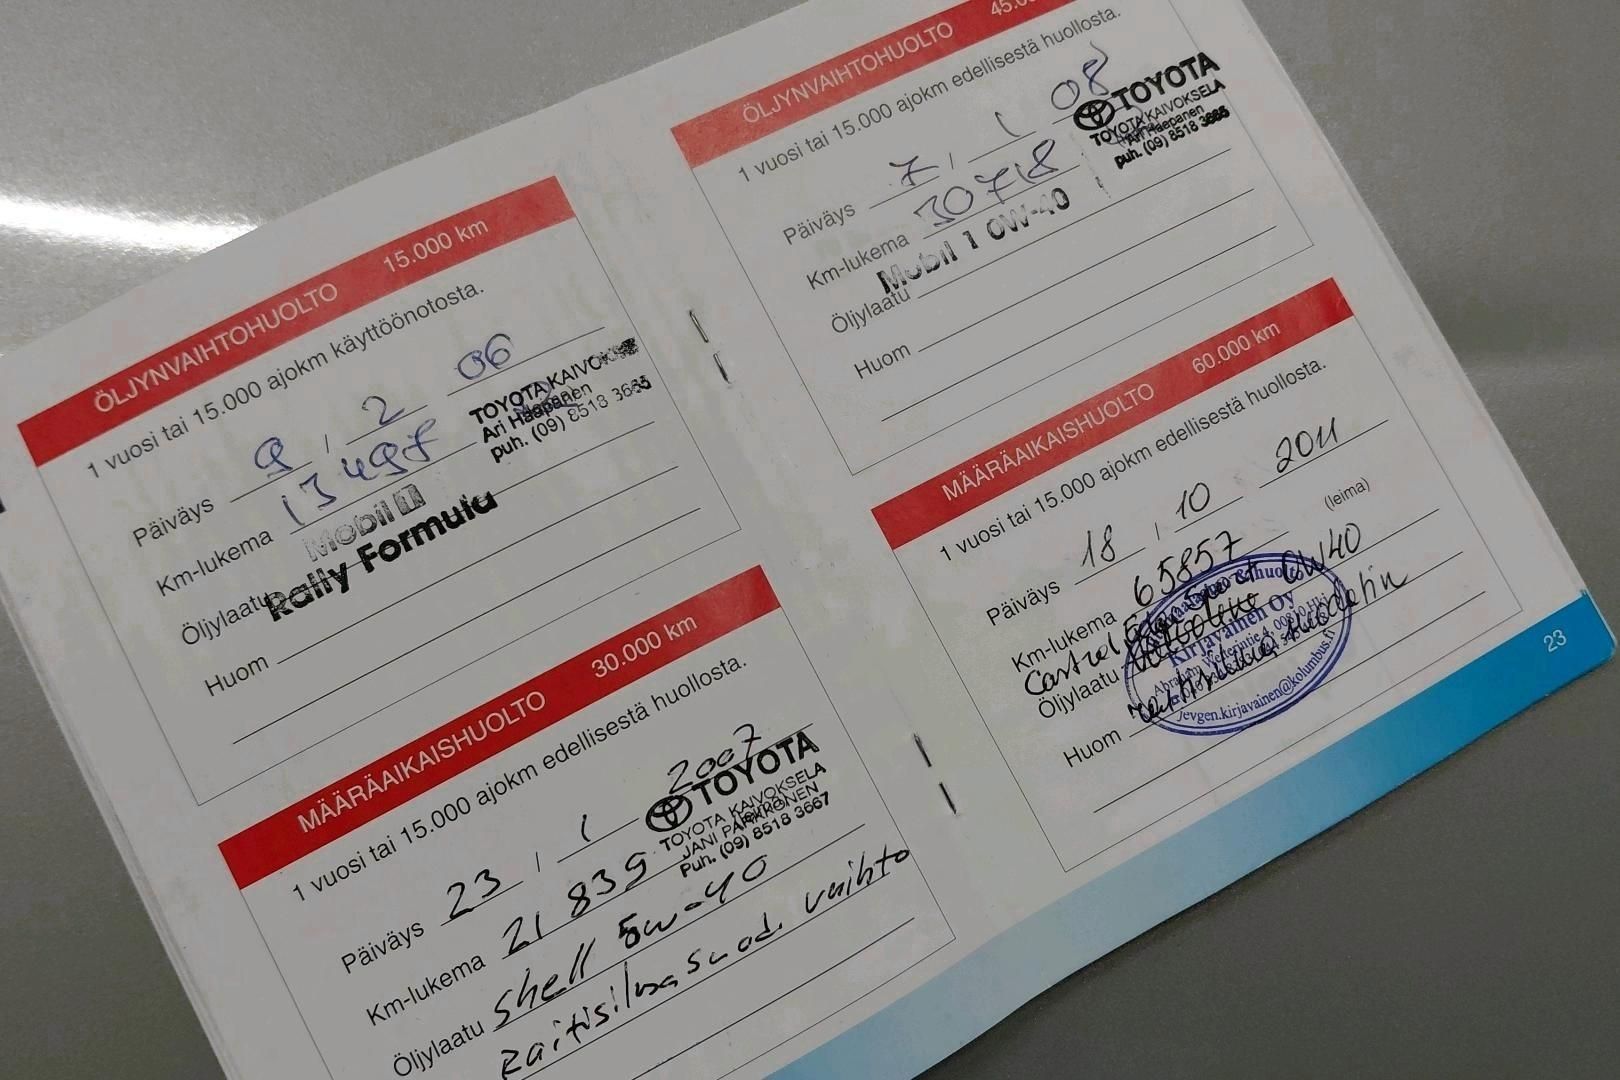 ÖLJYNVAIHTOHUOLTO 15.000 km
1 vuosi tai 15.000 ajokm käyttöönotosta.
Päiväys 9 , 2 06
Km-lukema 13498
TOYOTA KAIVOKSELA
Ari Haapanen
puh. (09) 8518 3665
Mobil 1
Öljylaatu Rally Formula
Huom
MÄÄRÄAIKAISHUOLTO 30.000 km
1 vuosi tai 15.000 ajokm edellisestä huollosta.
Päiväys 23 , 1 2007
TOYOTA
TOYOTA KAIVOKSELA
JANI PARKKONEN
Puh. (09) 8518 3667
Km-lukema 21 839
Öljylaatu Shell 5w-40
Raitisilmasuod. vaihto
ÖLJYNVAIHTOHUOLTO
1 vuosi tai 15.000 ajokm edellisestä huollosta.
Päiväys 7 , 1 08
TOYOTA
TOYOTA KAIVOKSELA
Ari Haapanen
puh. (09) 8518 3665
Km-lukema 30718
Öljylaatu Mobil 1 0W-40
Huom
MÄÄRÄAIKAISHUOLTO 60.000 km
1 vuosi tai 15.000 ajokm edellisestä huollosta.
Päiväys 18 , 10 2011
(leima)
Km-lukema 65857
Castrol Edge 0W40
Öljylaatu
Kirjavainen Oy
jevgen.kirjavainen@kolumbus.fi
Huom
23